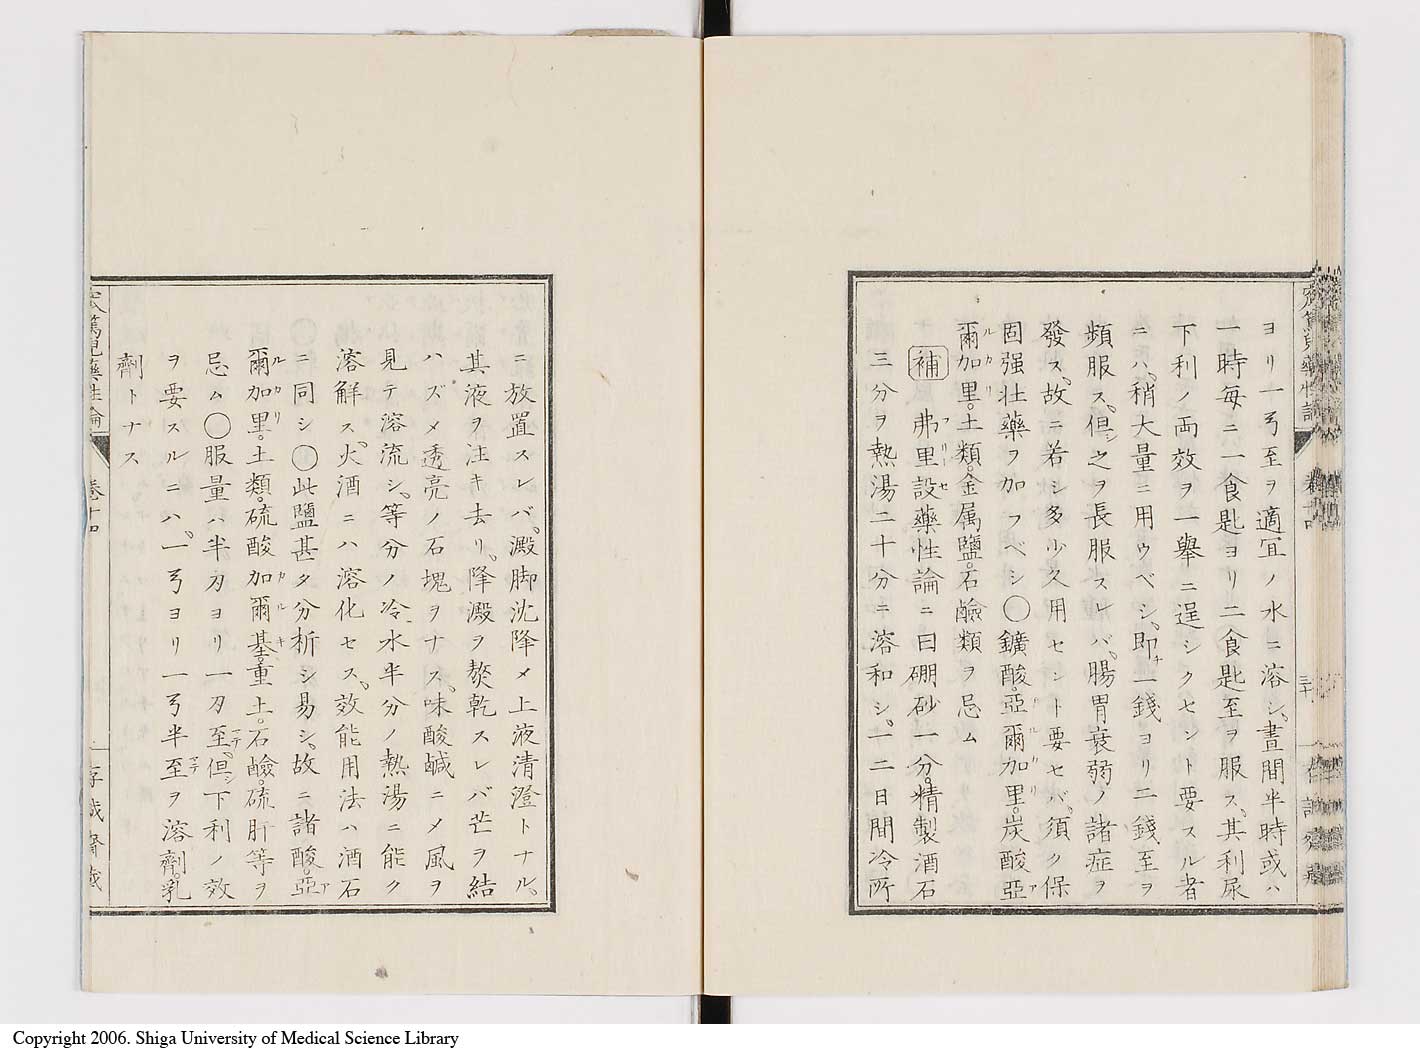 ヨリ一弓至ヲ適冝ノ水ニ溶シ、晝間半時或ハ
一時每ニ一食匙ヨリ二食匙至ヲ服ス、其利尿
下利ノ両效ヲ一擧ニ逞シクセント要スル者
ニハ、稍大量ニ用ウベシ、即チ一錢ヨリ二錢至ヲ
頻服ス、但シ之ヲ長服スレバ、腸胃衰弱ノ諸症ヲ
發ス、故ニ若シ多少久用セント要セバ、須ク保
固强壮藥ヲ加フベシ〇鑛酸。亞爾加里。炭酸亞
爾加里。土類。金属鹽。石鹼類ヲ忌ム
補 弗里設藥性論ニ曰硼砂一分。精製酒石
三分ヲ熱湯二十分ニ溶和シ、一二日間冷所
ニ放置スレバ、澱脚沈降メ上液清澄トナル、
其液ヲ注キ去リ、降澱ヲ熬乾スレバ芒ヲ結
ハズメ透亮ノ石塊ヲナス、味酸鹹ニメ風ヲ
見テ溶流シ、等分ノ冷水半分ノ熱湯ニ能ク
溶解ス、火酒ニハ溶化セス、效能用法ハ酒石
ニ同シ〇此鹽甚タ分析シ易シ、故ニ諸酸。亞
爾加里。土類。硫酸加爾基。重土。石鹼。硫肝等ヲ
忌ム〇服量ハ半刃ヨリ一刃至、但シ下利ノ效
ヲ要スルニハ、一弓ヨリ一弓半至ヲ溶劑。乳
劑トナス
篤兒藥性論 卷十四